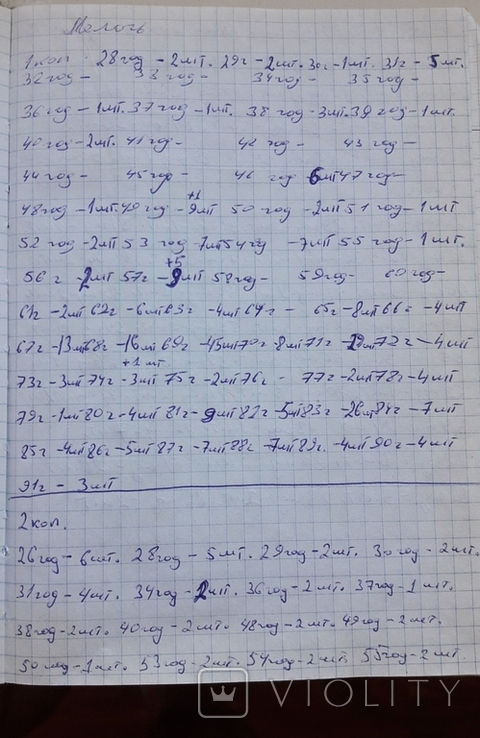 Мелочь
1 коп. 28 год - 2 шт. 29 г - 2 шт. 30 г - 1 шт. 31 г - 5 шт.
32 год - 33 год - 34 год - 35 год -
36 год - 1 шт. 37 год - 1 шт. 38 год - 3 шт. 39 год - 1 шт.
40 год - 2 шт. 41 год - 42 год - 43 год -
44 год - 45 год - 46 год 6 шт 47 год -
+1
48 год - 1 шт 49 год - 9 шт 50 год - 2 шт 51 год - 1 шт
52 год - 2 шт 53 год 7 шт 54 год - 7 шт 55 год - 1 шт.
+5
56 г - 2 шт 57 г - 9 шт 58 год - 59 год - 60 год -
61 г - 2 шт 62 г - 6 шт 63 г - 4 шт 64 г - 65 г - 8 шт 66 г - 4 шт
67 г - 13 шт 68 г - 16 шт 69 г - 45 шт 70 г - 8 шт 71 г - шт 72 г - 4 шт
+1 шт
73 г - 3 шт 74 г - 3 шт 75 г - 2 шт 76 г - 77 г - 2 шт 78 г - 4 шт
79 г - 1 шт 80 г - 4 шт 81 г - 9 шт 82 г - 5 шт 83 г - 26 шт 84 г - 7 шт
85 г - 4 шт 86 г - 5 шт 87 г - 7 шт 88 г 7 шт 89 г. - 4 шт 90 г - 4 шт
91 г - 3 шт
2 коп.
26 год - 6 шт. 28 год - 5 шт. 29 год - 2 шт. 30 год - 2 шт.
31 год - 4 шт. 34 год - 2 шт. 36 год - 2 шт. 37 год - 1 шт.
38 год - 2 шт. 40 год - 2 шт. 48 год - 2 шт. 49 год - 2 шт.
50 год - 1 шт. 53 год - 2 шт. 54 год - 2 шт. 55 год - 2 шт.
VIOLITY